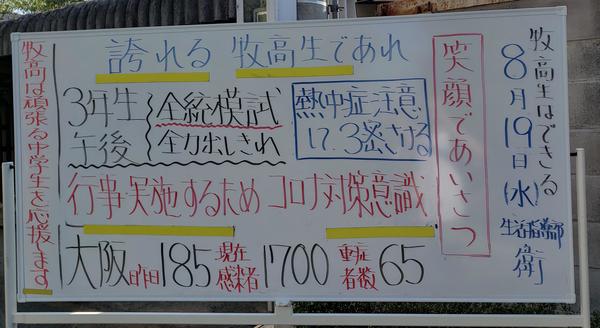 牧高生はできる
8月19日(水)
生活指導部
衛
笑顔であいさつ
誇れる 牧高生であれ
3年生 全統模試
午後 全力出しきれ
熱中症注意
17.3密さける
行事実施するため コロナ対策意識
大阪昨日185現在感染者1700重症者数65
牧高は頑張る中学生を応援します